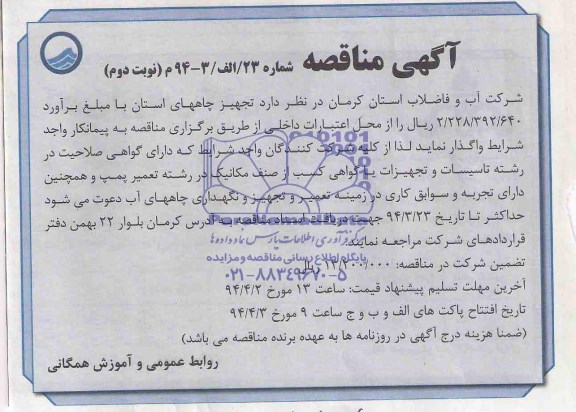 آگهی مناقصه شماره ۲۳/الف/۳-۹۴ م (نوبت دوم)
شرکت آب و فاضلاب استان کرمان در نظر دارد تجهیز چاههای استان با مبلغ برآورد
۲/۲۲۸/۳۹۲/۶۴۰ ریال را از محل اعتبارات داخلی از طریق برگزاری مناقصه به پیمانکار واجد
شرایط واگذار نماید لذا از کلیه شرکت کنندگان واجد شرایط که دارای گواهی صلاحیت در
رشته تاسیسات و تجهیزات یا گواهی کسب از صنف مکانیک در رشته تعمیر پمپ و همچنین
دارای تجربه و سوابق کاری در زمینه تعمیر و تجهیز و نگهداری چاههای آب دعوت می شود
حداکثر تا تاریخ ۹۴/۳/۲۳ جهت دریافت اسناد مناقصه به آدرس کرمان بلوار ۲۲ بهمن دفتر
قراردادهای شرکت مراجعه نمایند.
تضمین شرکت در مناقصه: ۱۳/۲۰۰/۰۰۰ ریال
آخرین مهلت تسلیم پیشنهاد قیمت: ساعت ۱۳ مورخ ۹۴/۴/۲
تاریخ افتتاح پاکت های الف و ب و ج ساعت ۹ مورخ ۹۴/۴/۳
(ضمنا هزینه درج آگهی در روزنامه ها به عهده برنده مناقصه می باشد)
روابط عمومی و آموزش همگانی
پایگاه اطلاع رسانی مناقصه و مزایده
۰۲۱-۸۸۳۴۹۶۷۰-۵